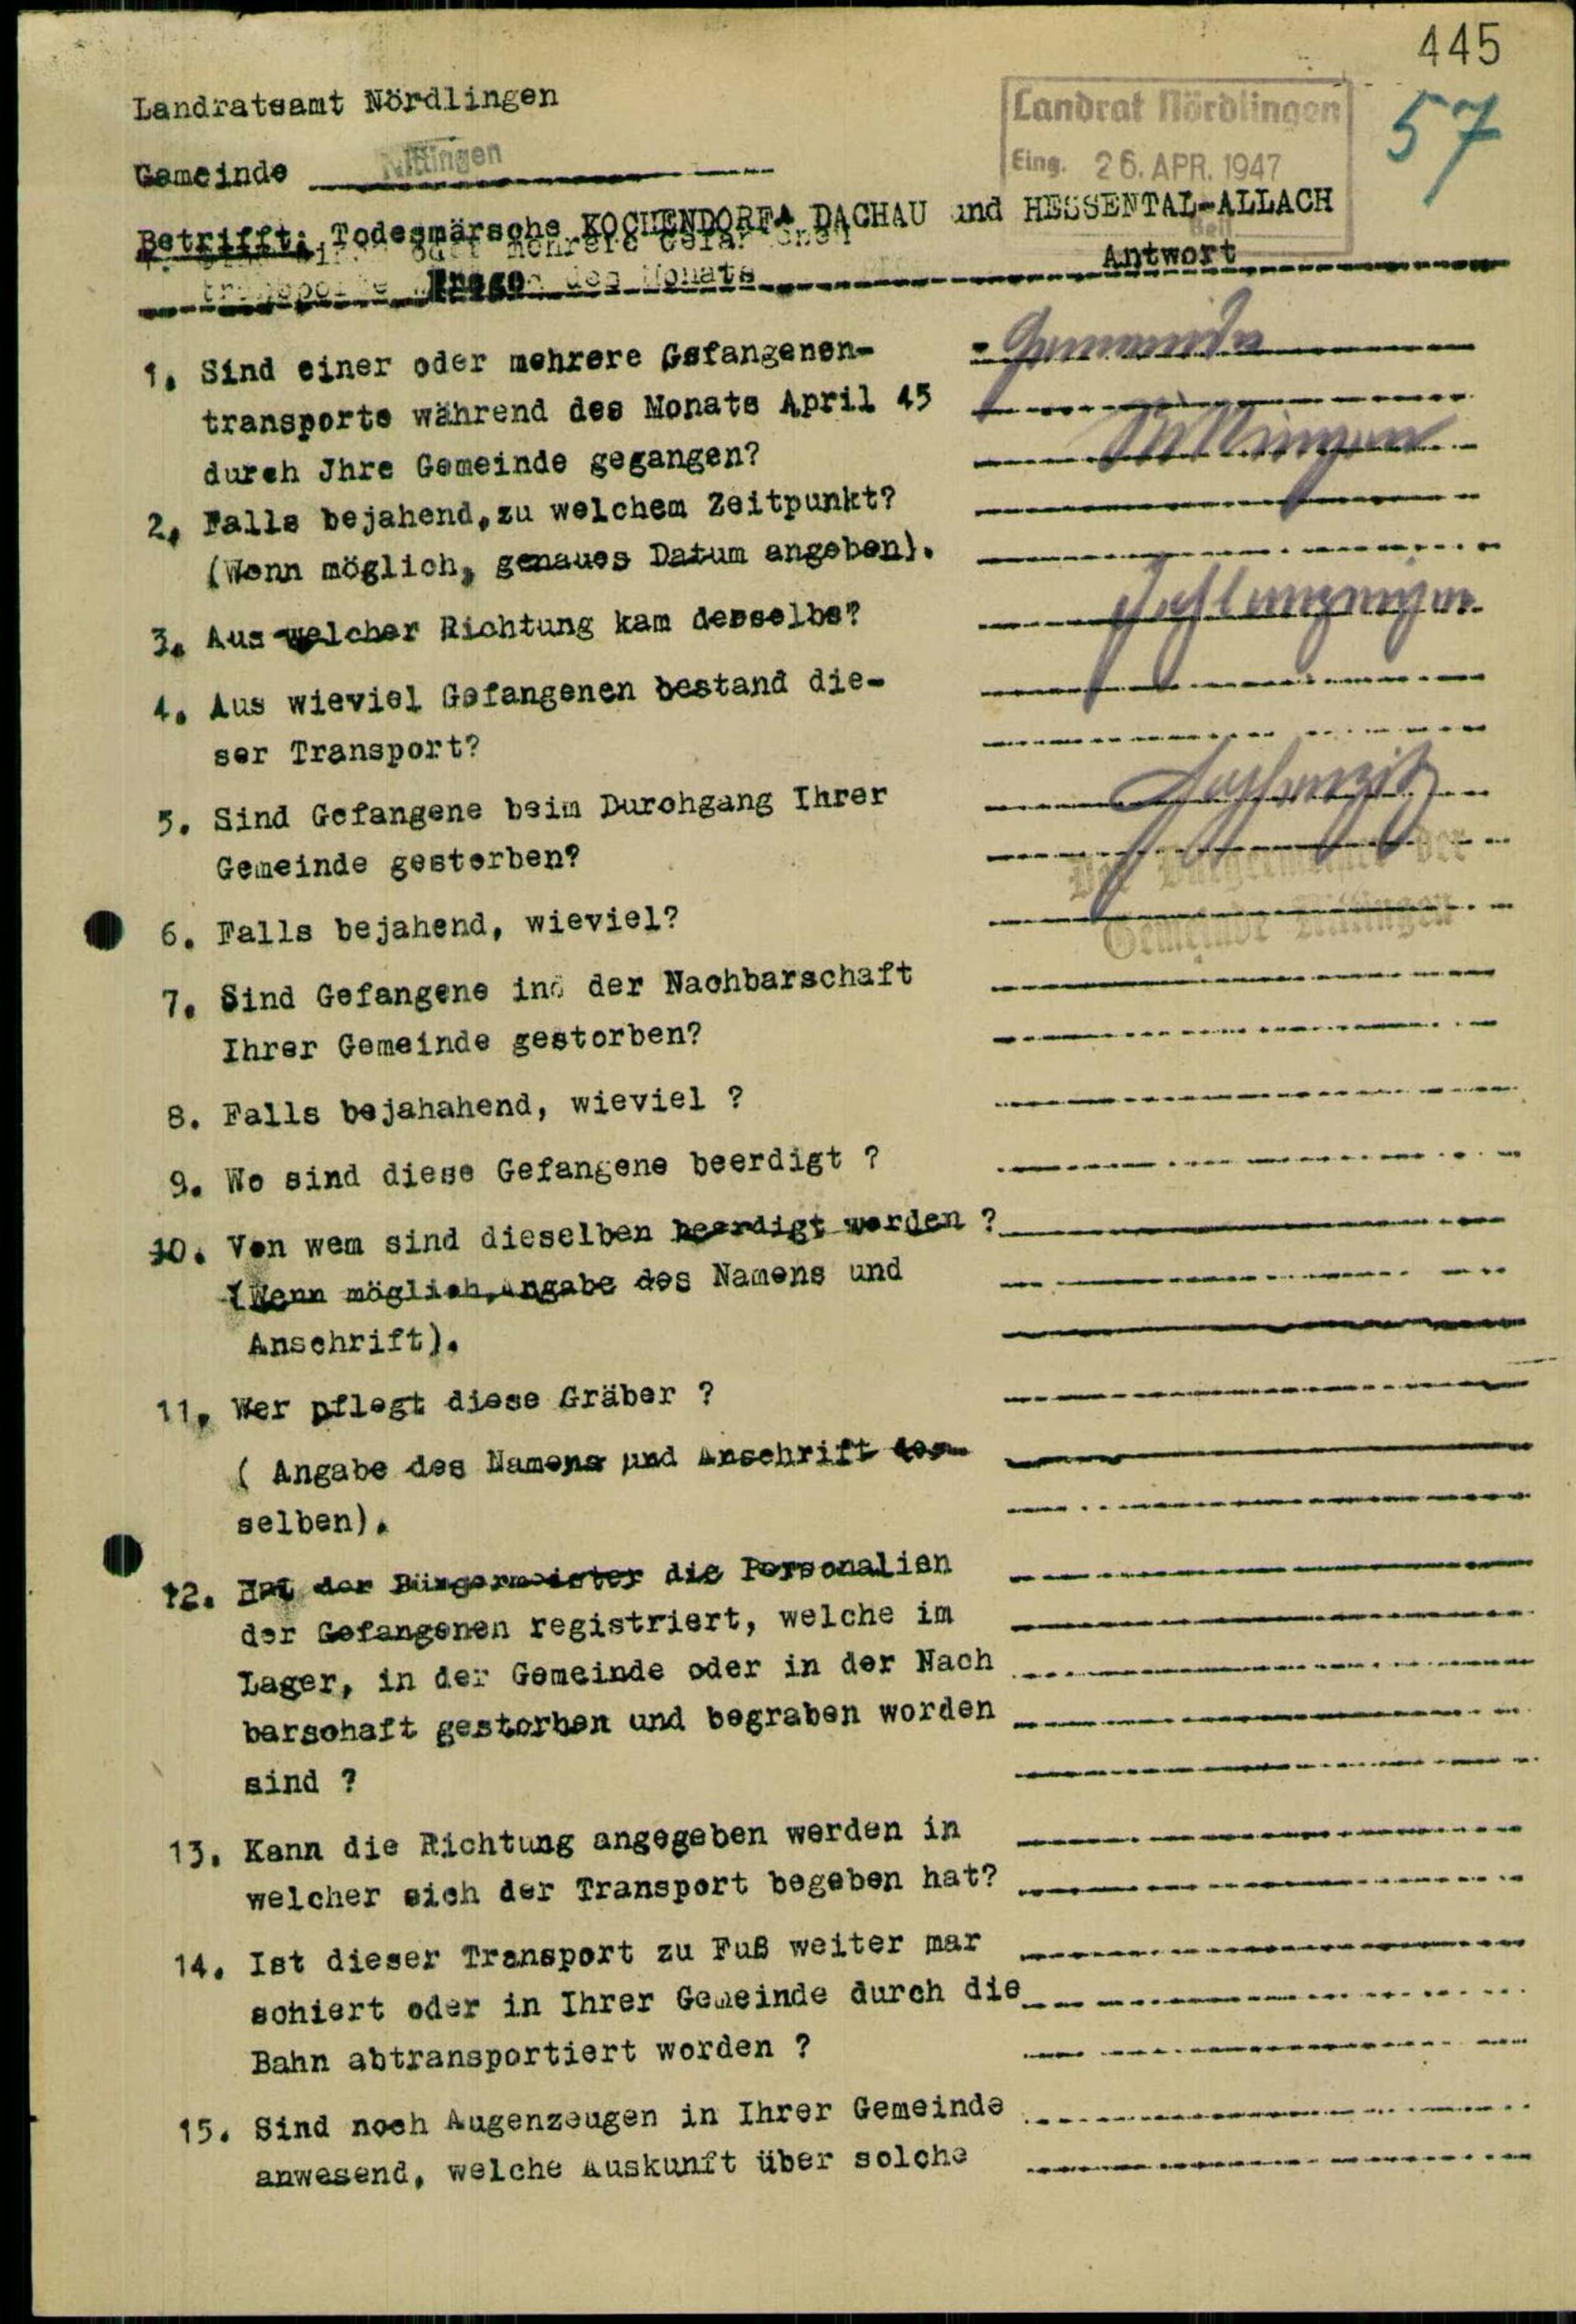 445
57
Landratsamt Nördlingen
Landrat Nördlingen
Eing. 26. APR. 1947
Gemeinde Nittingen
Betrifft: Todesmärsche KOCHENDORF-DACHAU und HESSENTAL-ALLACH
Frage
Antwort
1. Sind einer oder mehrere Gefangenen-
transporte während des Monats April 45
durch Jhre Gemeinde gegangen?
2. Falls bejahend, zu welchem Zeitpunkt?
(Wenn möglich, genaues Datum angeben).
3. Aus welcher Richtung kam derselbe?
4. Aus wieviel Gefangenen bestand die-
ser Transport?
5. Sind Gefangene beim Durchgang Ihrer
Gemeinde gestorben?
6. Falls bejahend, wieviel?
7. Sind Gefangene in der Nachbarschaft
Ihrer Gemeinde gestorben?
8. Falls bejahahend, wieviel ?
9. Wo sind diese Gefangene beerdigt ?
10. Von wem sind dieselben beerdigt worden ?
(Wenn möglich, Angabe des Namens und
Anschrift).
11. Wer pflegt diese Gräber ?
( Angabe des Namens und Anschrift des-
selben).
12. Hat der Bürgermeister die Personalien
der Gefangenen registriert, welche im
Lager, in der Gemeinde oder in der Nach
barschaft gestorben und begraben worden
sind ?
13. Kann die Richtung angegeben werden in
welcher sich der Transport begeben hat?
14. Ist dieser Transport zu Fuß weiter mar
schiert oder in Ihrer Gemeinde durch die
Bahn abtransportiert worden ?
15. Sind noch Augenzeugen in Ihrer Gemeinde
anwesend, welche Auskunft über solche
Gemeinde
Nittingen
Fehlanzeige
Der Bürgermeister der
Gemeinde Nittingen